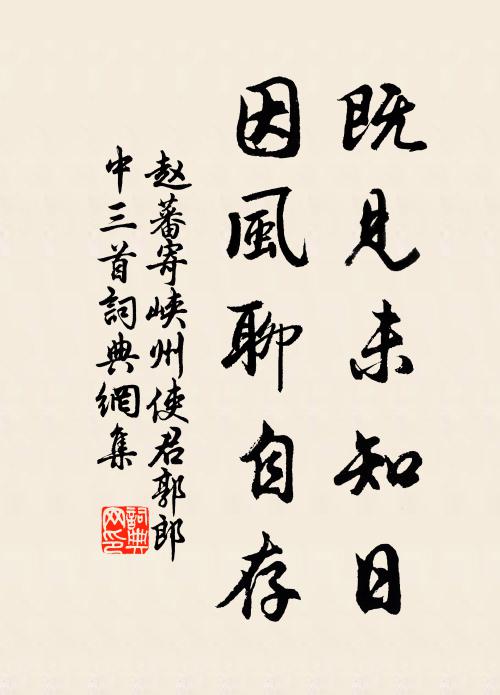 既見未知日
因風聊自存
赵蕃寄峽州使君郭郎
中三首詞典網集
詞典
网印